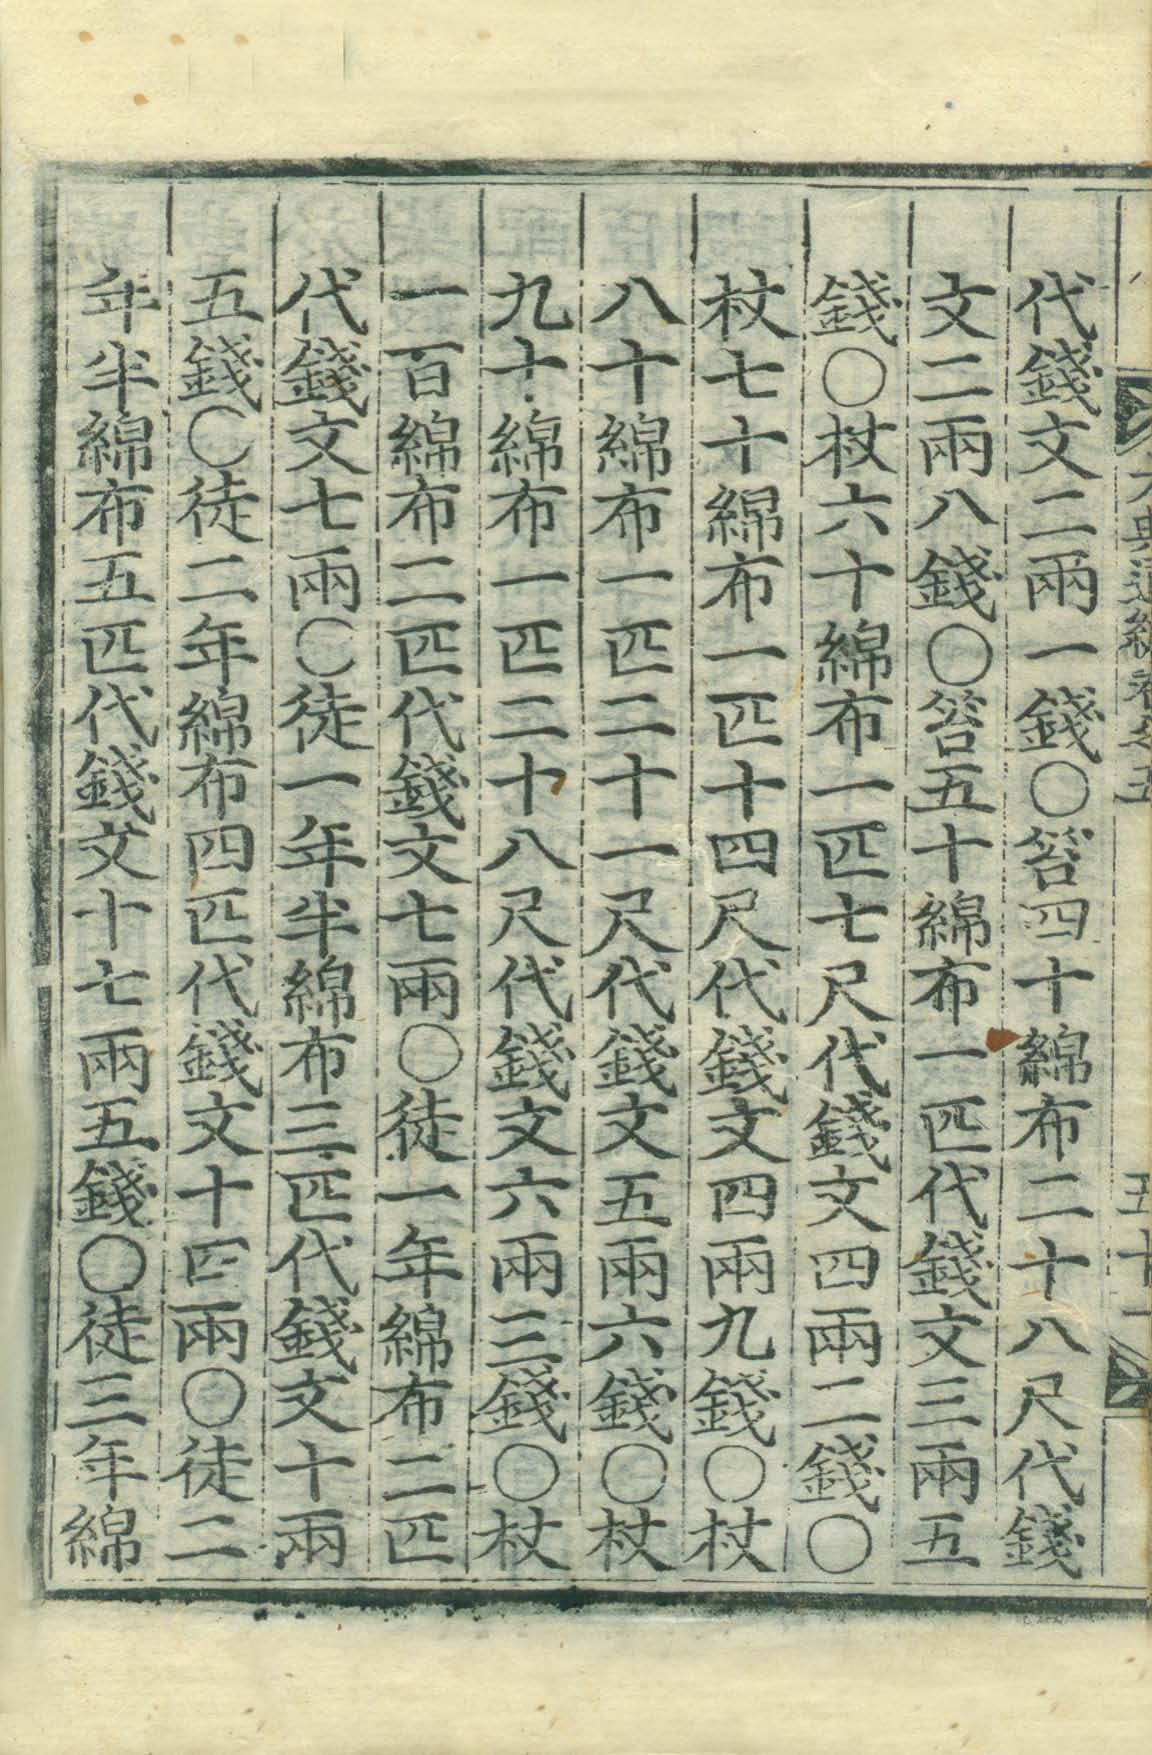 大典通編卷之五 五十一
代錢文二兩一錢〇笞四十綿布二十八尺代錢
文二兩八錢〇笞五十綿布一匹代錢文三兩五
錢〇杖六十綿布一匹七尺代錢文四兩二錢〇
杖七十綿布一匹十四尺代錢文四兩九錢〇杖
八十綿布一匹二十一尺代錢文五兩六錢〇杖
九十綿布一匹二十八尺代錢文六兩三錢〇杖
一百綿布二匹代錢文七兩〇徒一年綿布二匹
代錢文七兩〇徒一年半綿布三匹代錢文十兩
五錢〇徒二年綿布四匹代錢文十四兩〇徒二
年半綿布五匹代錢文十七兩五錢〇徒三年綿